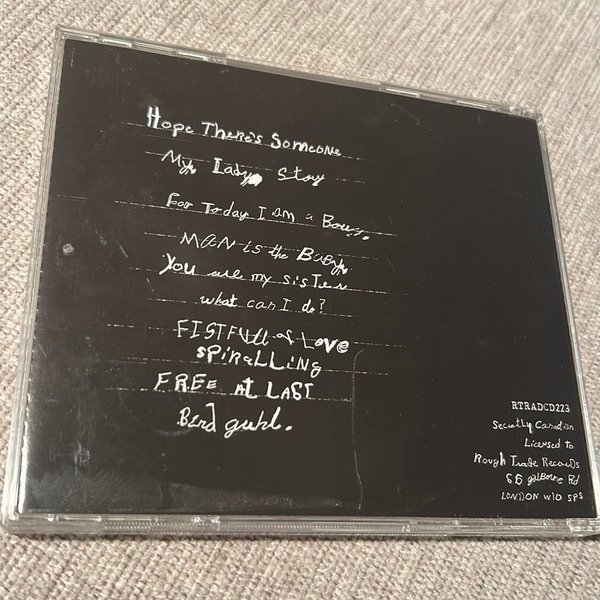 Hope There's Someone
My Lady Story
For Today I am a Boy.
MAN is the Baby
You are my sister
what can I do?
FISTFULL of LOVE
SPIRALLING
FREE AT LAST
Bird guhl.
RTRADCD223
Secretly Canadian
Licensed to
Rough Trade Records
66 golborne Rd
LONDON W10 5PS